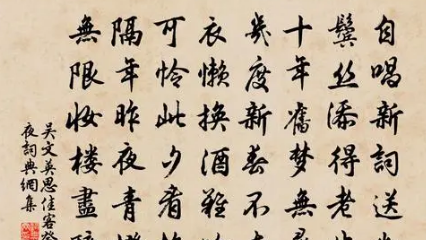 自唱新詞送
鬢丝添得老
十年舊夢無
幾度新春不
衣懶換酒難
可怜此夕看
隔年昨夜青
無限妝楼盡
吳文英思佳客癸
夜詞典網集